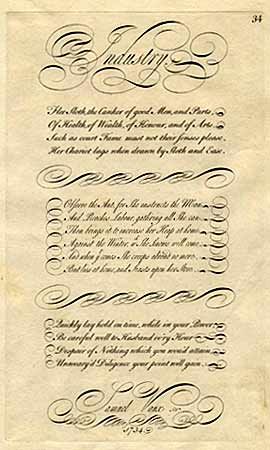 34
Industry.
Flee Sloth, the Canker of good Men, and Parts,
Of Health, of Wealth, of Honour, and of Arts.
Such as court Fame must not their senses please
Her Chariot lags when drawn by Sloth and Ease.
Observe the Ant, for She instructs the Man,
And Preaches Labour, gathering all She can,
Then brings it to increase her Heap at home,
Against the Winter, She knows will come.
And when comes She creeps abroad no more,
But lies at home, and feasts upon her Store.
Quickly lay hold on time, while in your Power,
Be careful well to Husband ev'ry Hour
Despair of Nothing which you would attain
Unweary'd Diligence your point will gain.
Samuel Vaux
1734